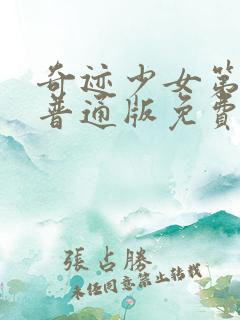 奇迹少女第
普通版免費
張占勝
未经同意禁止转载